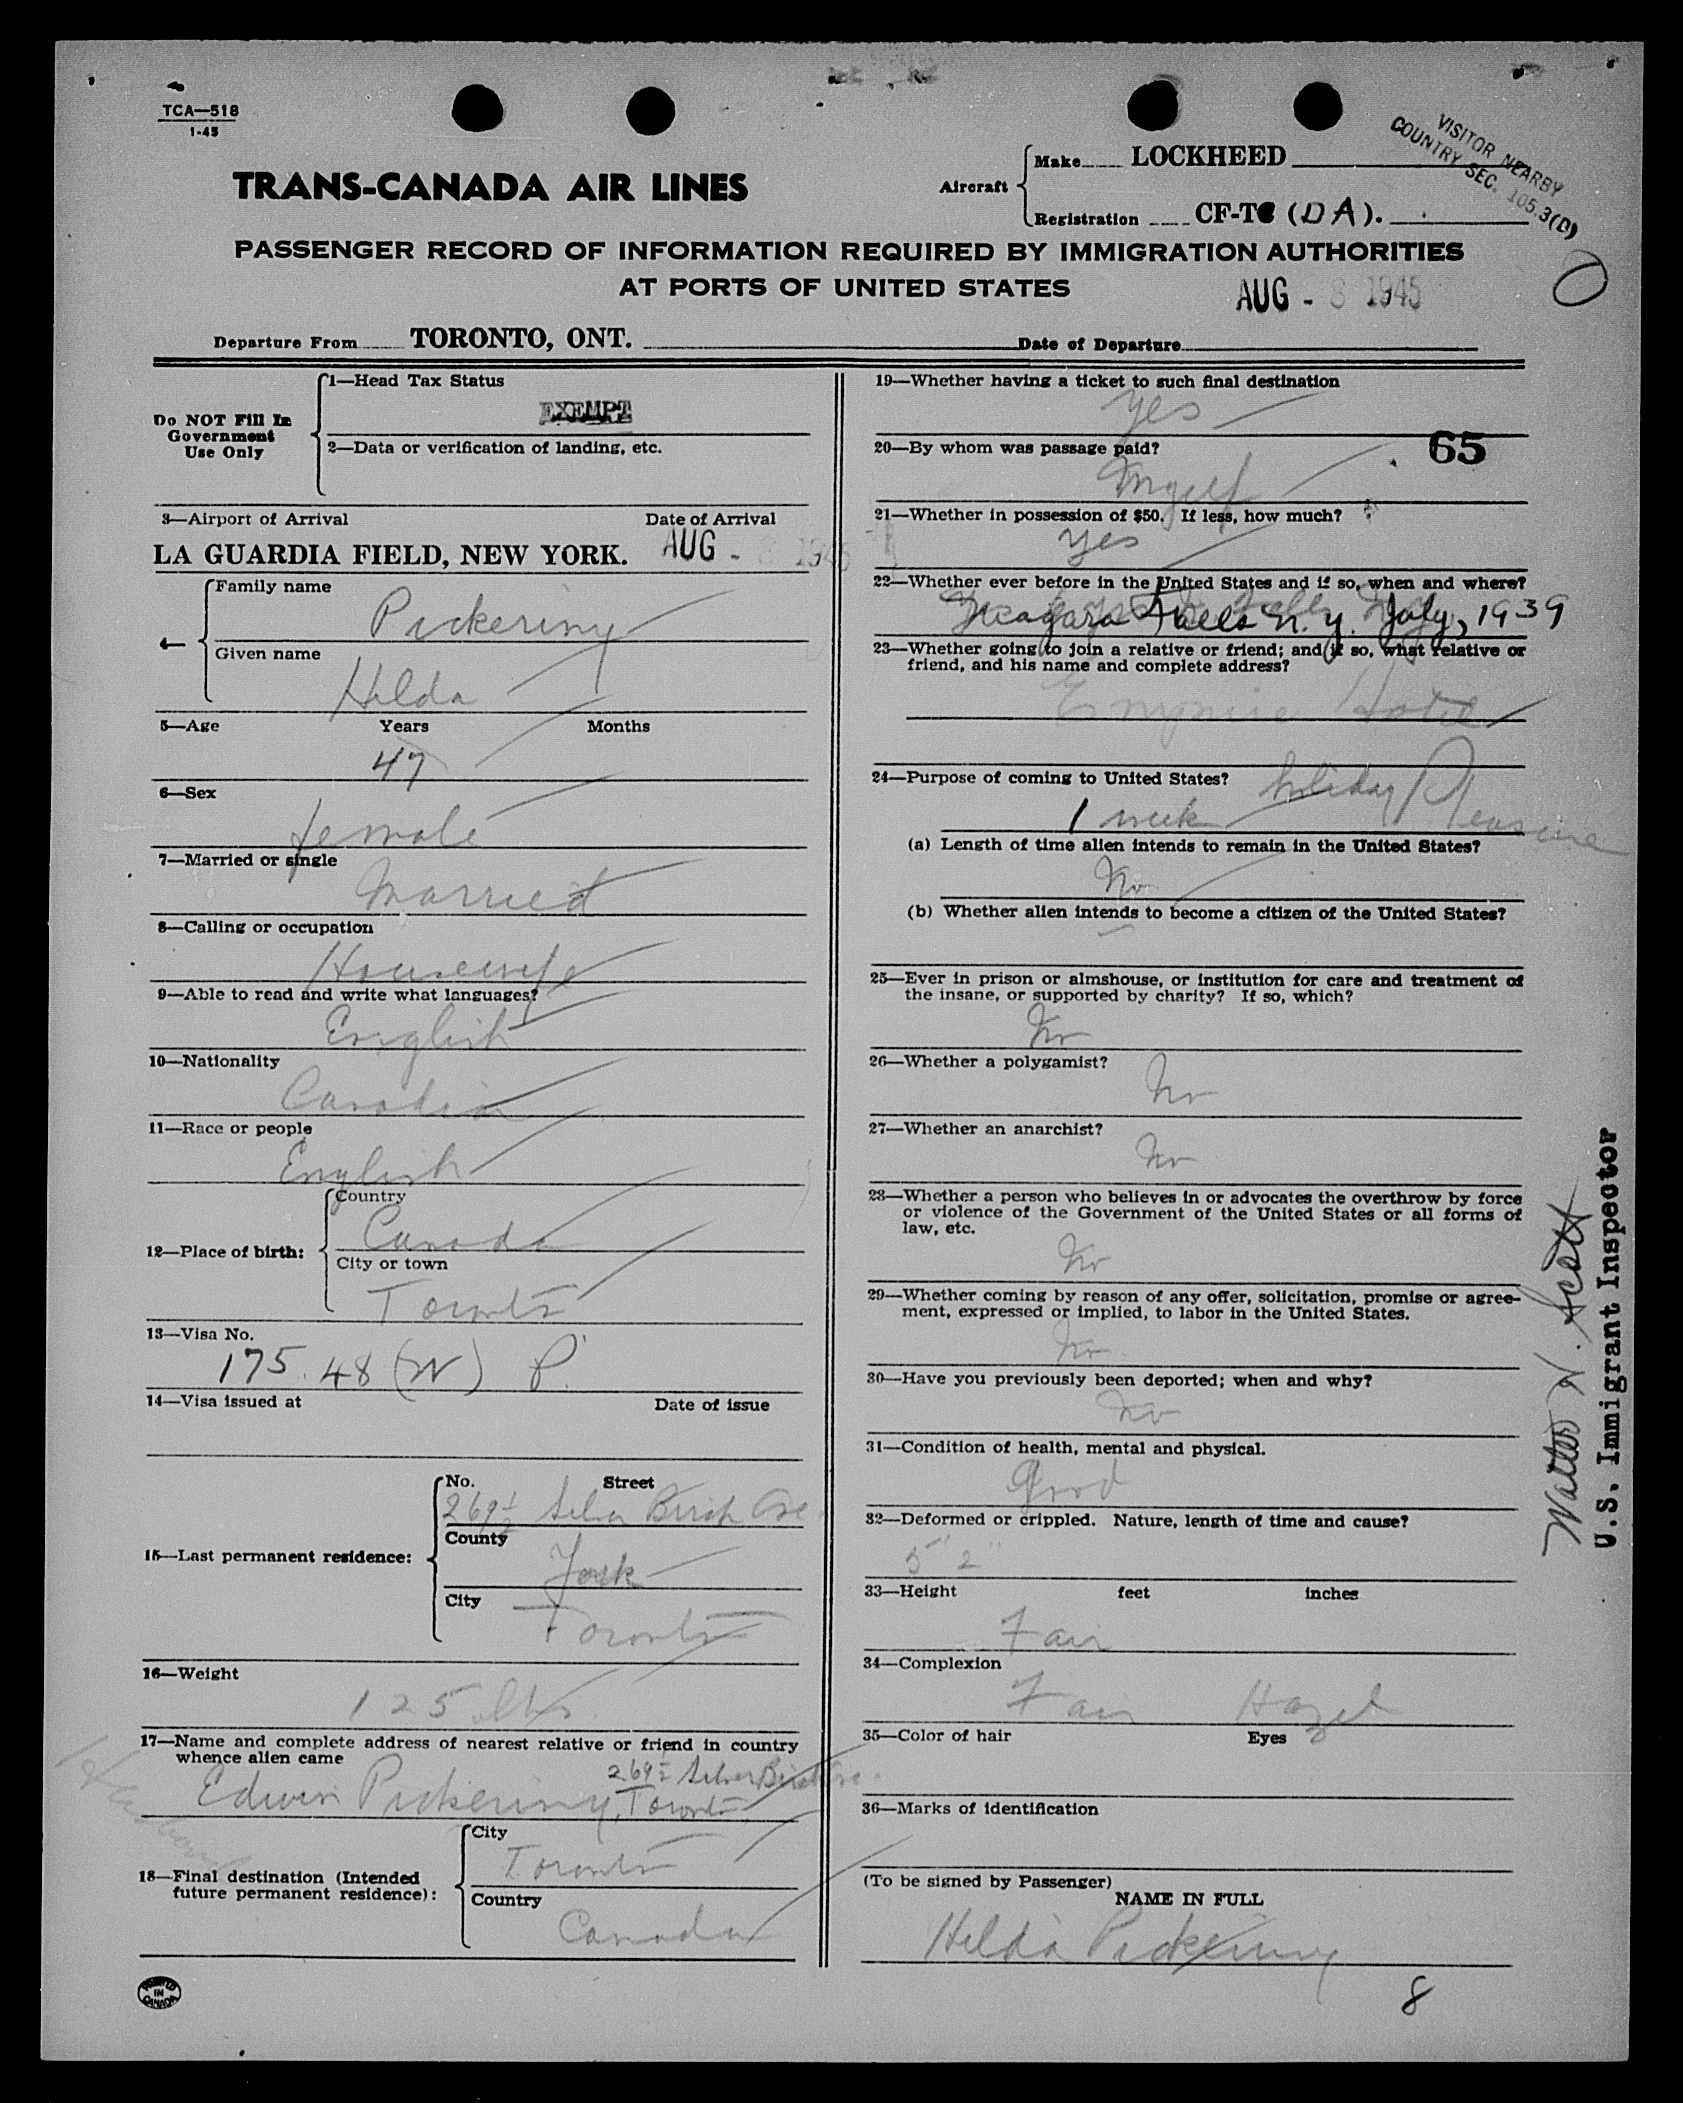 TCA—518
1-45
VISITOR NEARBY
COUNTRY SEC. 105.3(D)
TRANS-CANADA AIR LINES
Aircraft
Make LOCKHEED
Registration CF-TC (DA).
PASSENGER RECORD OF INFORMATION REQUIRED BY IMMIGRATION AUTHORITIES
AT PORTS OF UNITED STATES
AUG - 8 1945
Departure From TORONTO, ONT. Date of Departure
Do NOT Fill In
Government
Use Only
1—Head Tax Status
EXEMPT
2—Data or verification of landing, etc.
3—Airport of Arrival Date of Arrival
LA GUARDIA FIELD, NEW YORK. AUG - 8 1945
Family name
Pickering
Given name
Hilda
5—Age Years Months
47
6—Sex
female
7—Married or single
Married
8—Calling or occupation
Housewife
9—Able to read and write what languages?
English
10—Nationality
Canadian
11—Race or people
English
12—Place of birth:
Country
Canada
City or town
Toronto
13—Visa No.
175.48 (W) P.
14—Visa issued at Date of issue
15—Last permanent residence:
No. Street
269½ Silver Birch Ave.
County
York
City
Toronto
16—Weight
125 lbs.
17—Name and complete address of nearest relative or friend in country
whence alien came
269½ Silver Birch Ave.
Edwin Pickering, Toronto
Husband
18—Final destination (Intended
future permanent residence):
City
Toronto
Country
Canada
PRINTED
IN
CANADA
19—Whether having a ticket to such final destination
Yes
20—By whom was passage paid?
65
Myself
21—Whether in possession of $50. If less, how much?
Yes
22—Whether ever before in the United States and if so, when and where?
Niagara Falls N.Y. July, 1939
23—Whether going to join a relative or friend; and if so, what relative or
friend, and his name and complete address?
Empire Hotel
24—Purpose of coming to United States?
holiday Pleasure
1 week
(a) Length of time alien intends to remain in the United States?
No
(b) Whether alien intends to become a citizen of the United States?
25—Ever in prison or almshouse, or institution for care and treatment of
the insane, or supported by charity? If so, which?
No
26—Whether a polygamist?
No
27—Whether an anarchist?
No
28—Whether a person who believes in or advocates the overthrow by force
or violence of the Government of the United States or all forms of
law, etc.
No
29—Whether coming by reason of any offer, solicitation, promise or agree-
ment, expressed or implied, to labor in the United States.
No
30—Have you previously been deported; when and why?
No
31—Condition of health, mental and physical.
Good
32—Deformed or crippled. Nature, length of time and cause?
5" 2"
33—Height feet inches
Fair
34—Complexion
Fair Hazel
35—Color of hair Eyes
36—Marks of identification
(To be signed by Passenger)
NAME IN FULL
Hilda Pickering
8
Walter N. Scott
U.S. Immigrant Inspector